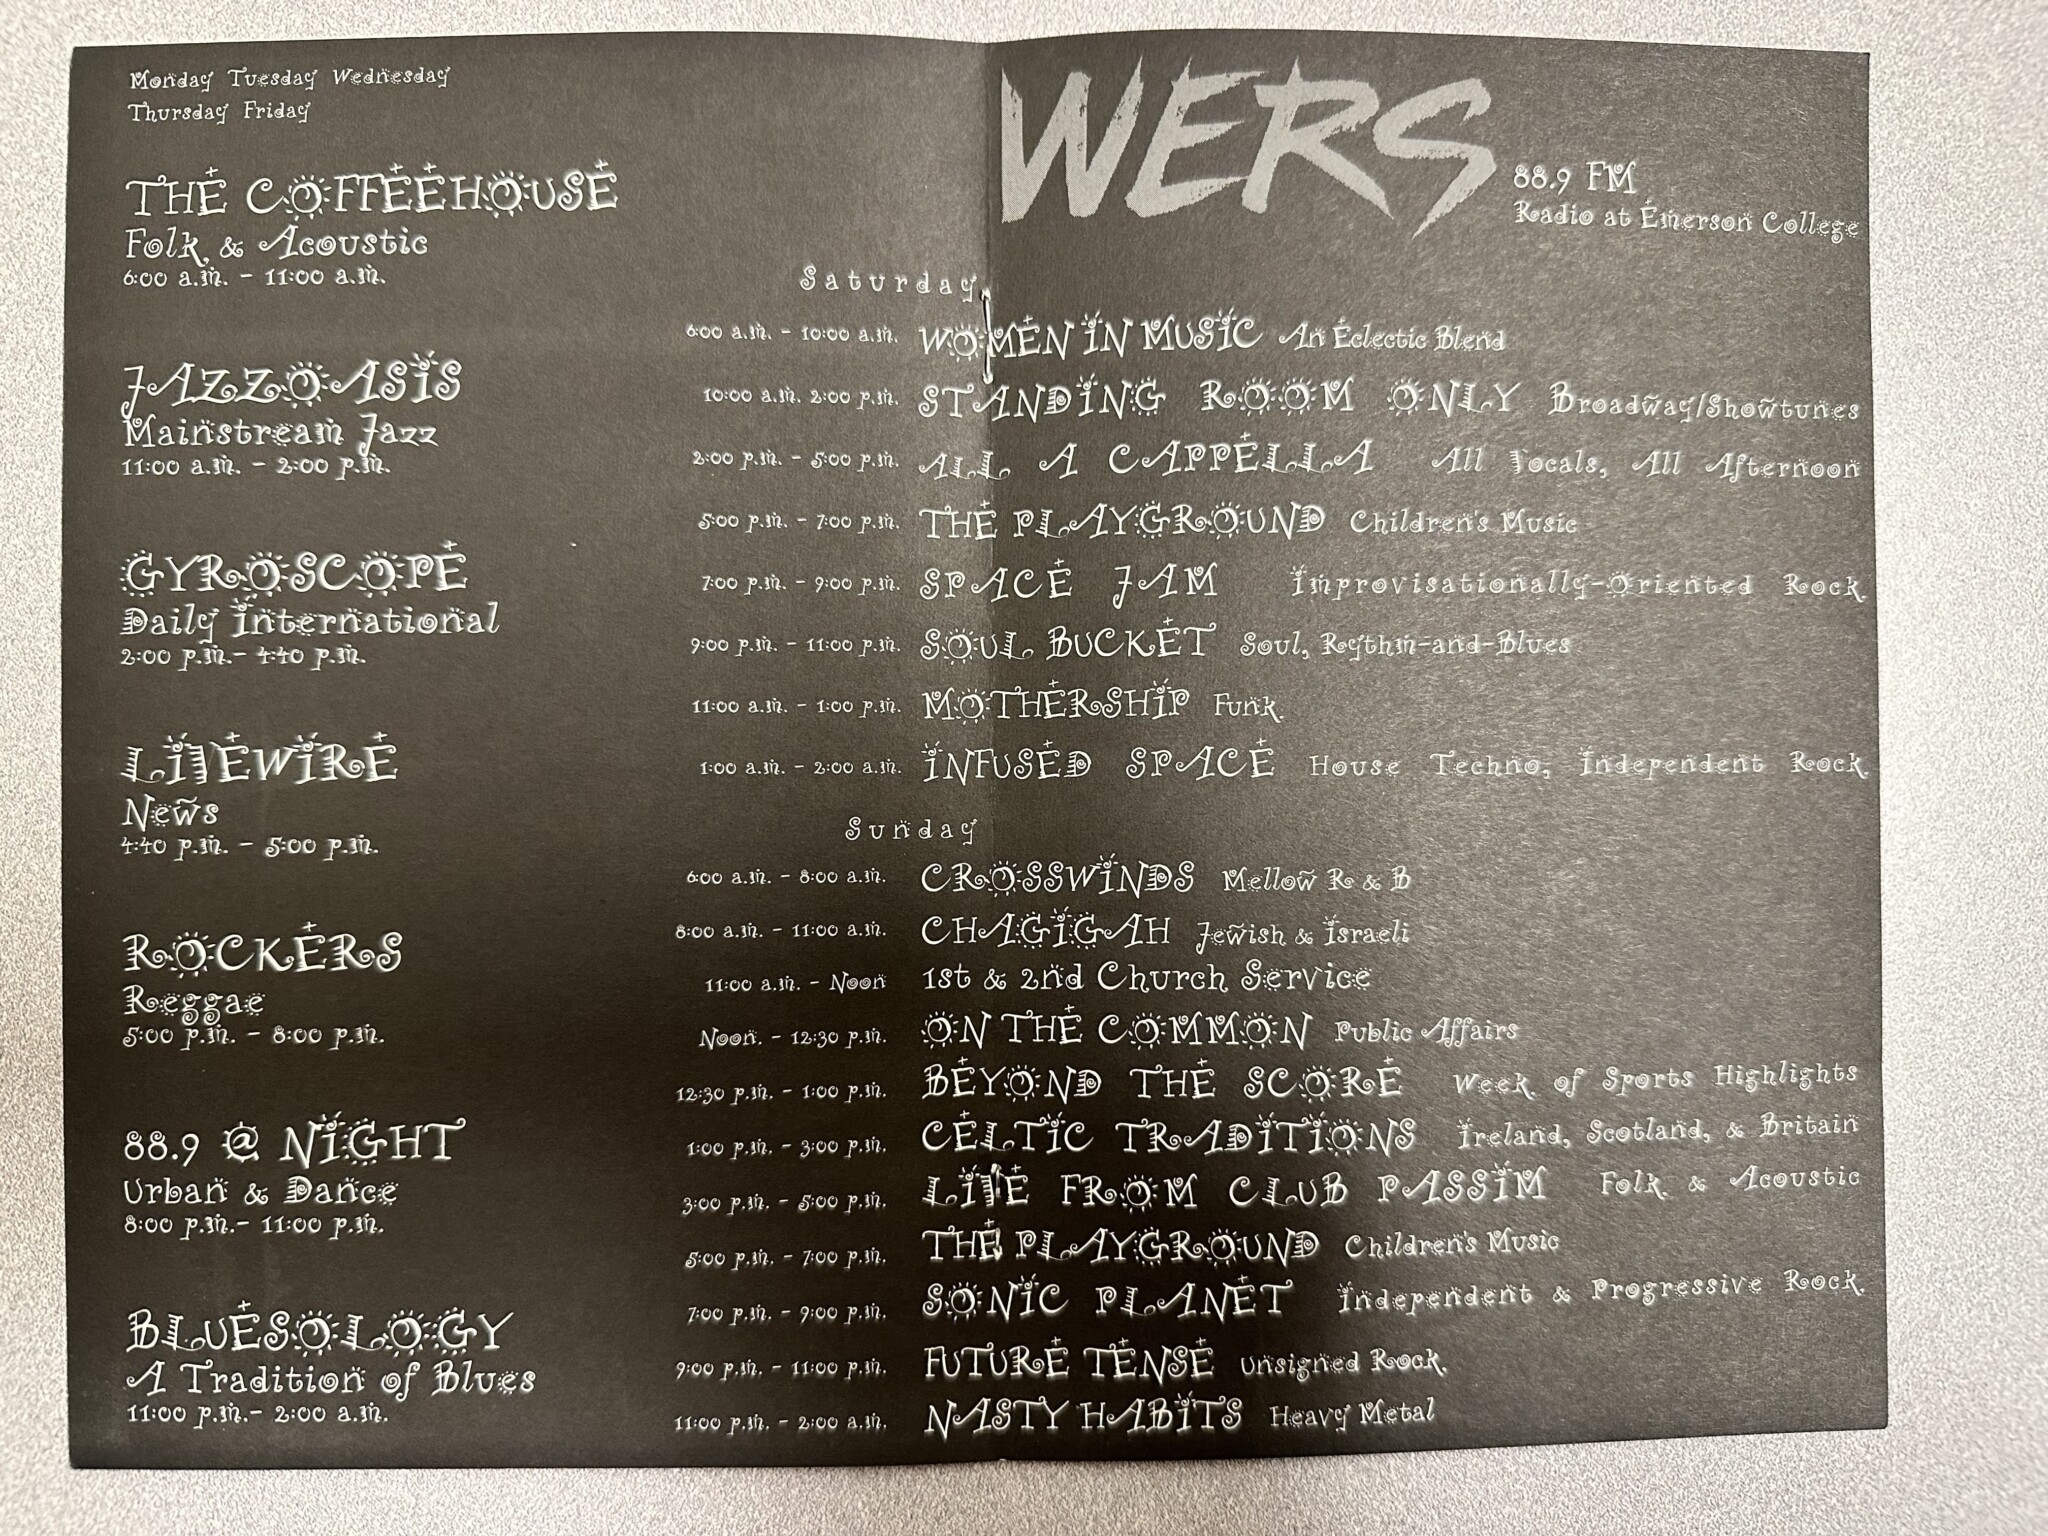 Monday Tuesday Wednesday
Thursday Friday
THE COFFEEHOUSE
Folk & Acoustic
6:00 a.m. - 11:00 a.m.
JAZZ OASIS
Mainstream Jazz
11:00 a.m. - 2:00 p.m.
GYROSCOPE
Daily International
2:00 p.m.- 4:40 p.m.
LIVEWIRE
News
4:40 p.m. - 5:00 p.m.
ROCKERS
Reggae
5:00 p.m. - 8:00 p.m.
88.9 @ NIGHT
Urban & Dance
8:00 p.m.- 11:00 p.m.
BLUESOLOGY
A Tradition of Blues
11:00 p.m.- 2:00 a.m.
WERS
88.9 FM
Radio at Emerson College
Saturday
6:00 a.m. - 10:00 a.m. WOMEN IN MUSIC An Eclectic Blend
10:00 a.m. 2:00 p.m. STANDING ROOM ONLY Broadway/Showtunes
2:00 p.m. - 5:00 p.m. ALL A CAPPELLA All Vocals, All Afternoon
5:00 p.m. - 7:00 p.m. THE PLAYGROUND Children's Music
7:00 p.m. - 9:00 p.m. SPACE JAM Improvisationally-Oriented Rock
9:00 p.m. - 11:00 p.m. SOUL BUCKET Soul, Rythm-and-Blues
11:00 a.m. - 1:00 p.m. MOTHERSHIP Funk
1:00 a.m. - 2:00 a.m. INFUSED SPACE House Techno, Independent Rock
Sunday
6:00 a.m. - 8:00 a.m. CROSSWINDS Mellow R & B
8:00 a.m. - 11:00 a.m. CHAGIGAH Jewish & Israeli
11:00 a.m. - Noon 1st & 2nd Church Service
Noon. - 12:30 p.m. ON THE COMMON Public Affairs
12:30 p.m. - 1:00 p.m. BEYOND THE SCORE Week of Sports Highlights
1:00 p.m. - 3:00 p.m. CELTIC TRADITIONS Ireland, Scotland, & Britain
3:00 p.m. - 5:00 p.m. LIVE FROM CLUB PASSIM Folk & Acoustic
5:00 p.m. - 7:00 p.m. THE PLAYGROUND Children's Music
7:00 p.m. - 9:00 p.m. SONIC PLANET Independent & Progressive Rock
9:00 p.m. - 11:00 p.m. FUTURE TENSE Unsigned Rock
11:00 p.m. - 2:00 a.m. NASTY HABITS Heavy Metal